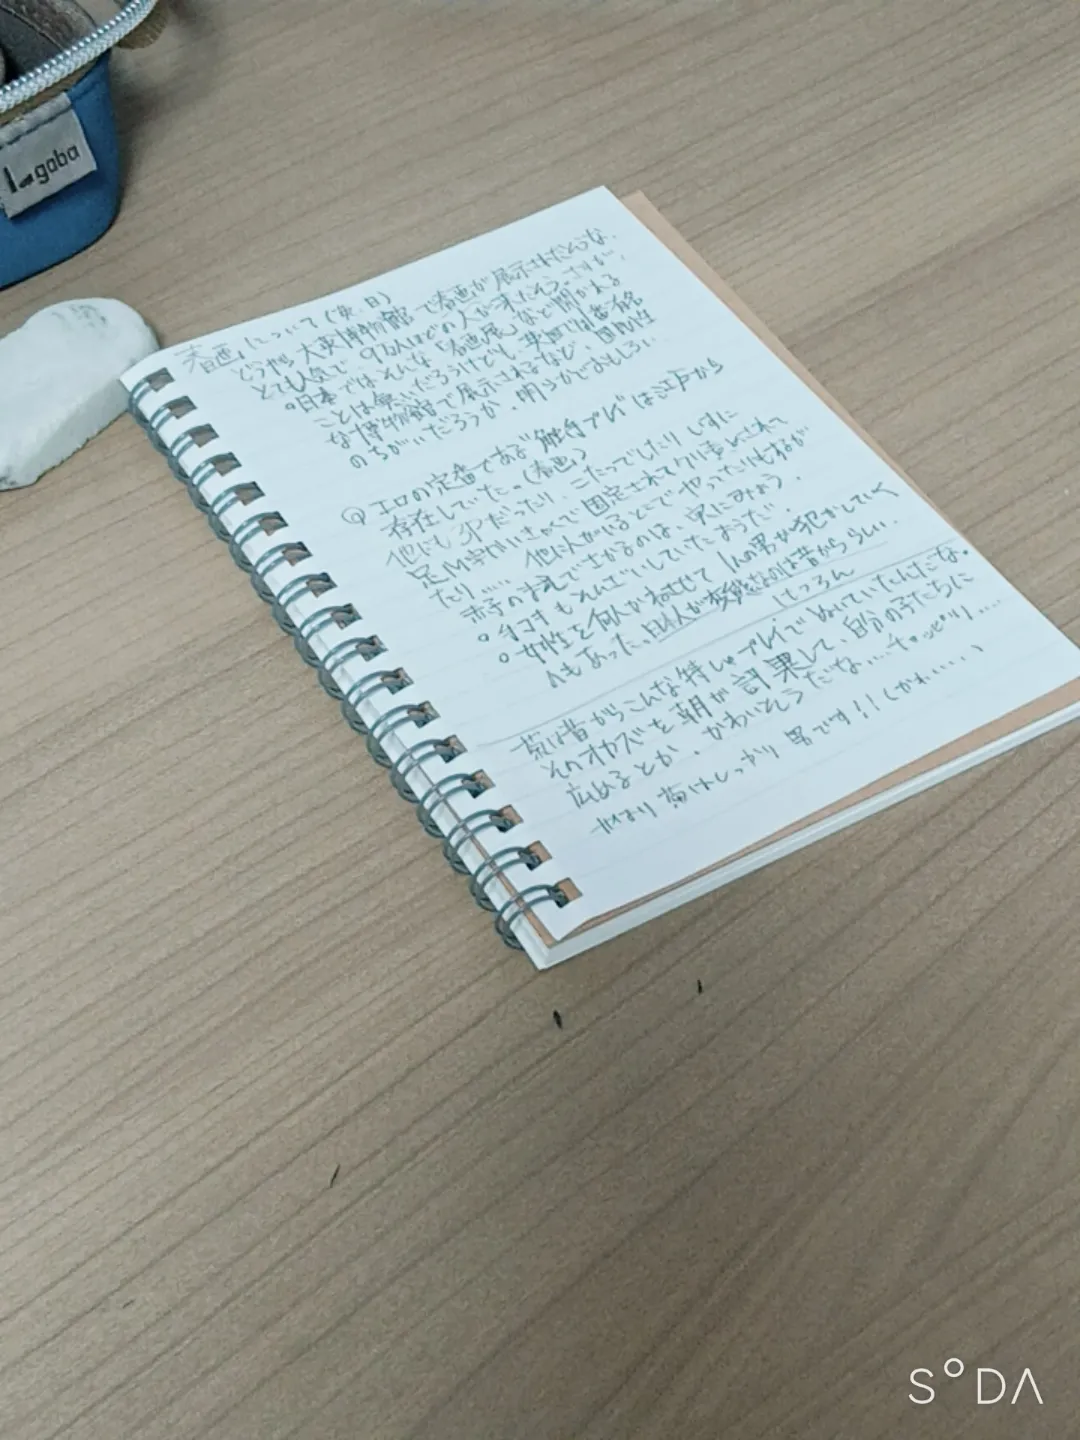 goba
春画について(英、日)
どうやら大英博物館で春画が展示されたそうな、
とても人気で、9万人ほどの人が来たそう。さすが、
日本ではそんな「春画展」など開かれる
ことは無いだろうけども、英国では有名
な博物館で展示されるなど、国民性
のちがいだろうか、明らかでおもしろい
エロの定番である"触手プレイ"は江戸から
存在していた。(春画)
他にも だったり、こたつでしたり
足M字 で固定されて されて
たり…… 他に人がいるとこでやってたりもするが
赤子の まさるのは、実にみょう。
もそんざいしていたようだ。
女性を何人かねさせて1人の男が犯かしていく
もあった、日本人が変態なのは昔かららしい。
けつろん
昔からこんな特しゅプレイでぬいていたんだな。
そのオカズを朝が 、自分の子たちに
広めるとか、かわいそうだな……チョッピリ……
やはり しっかり男です!!(かわいい)
S°DA